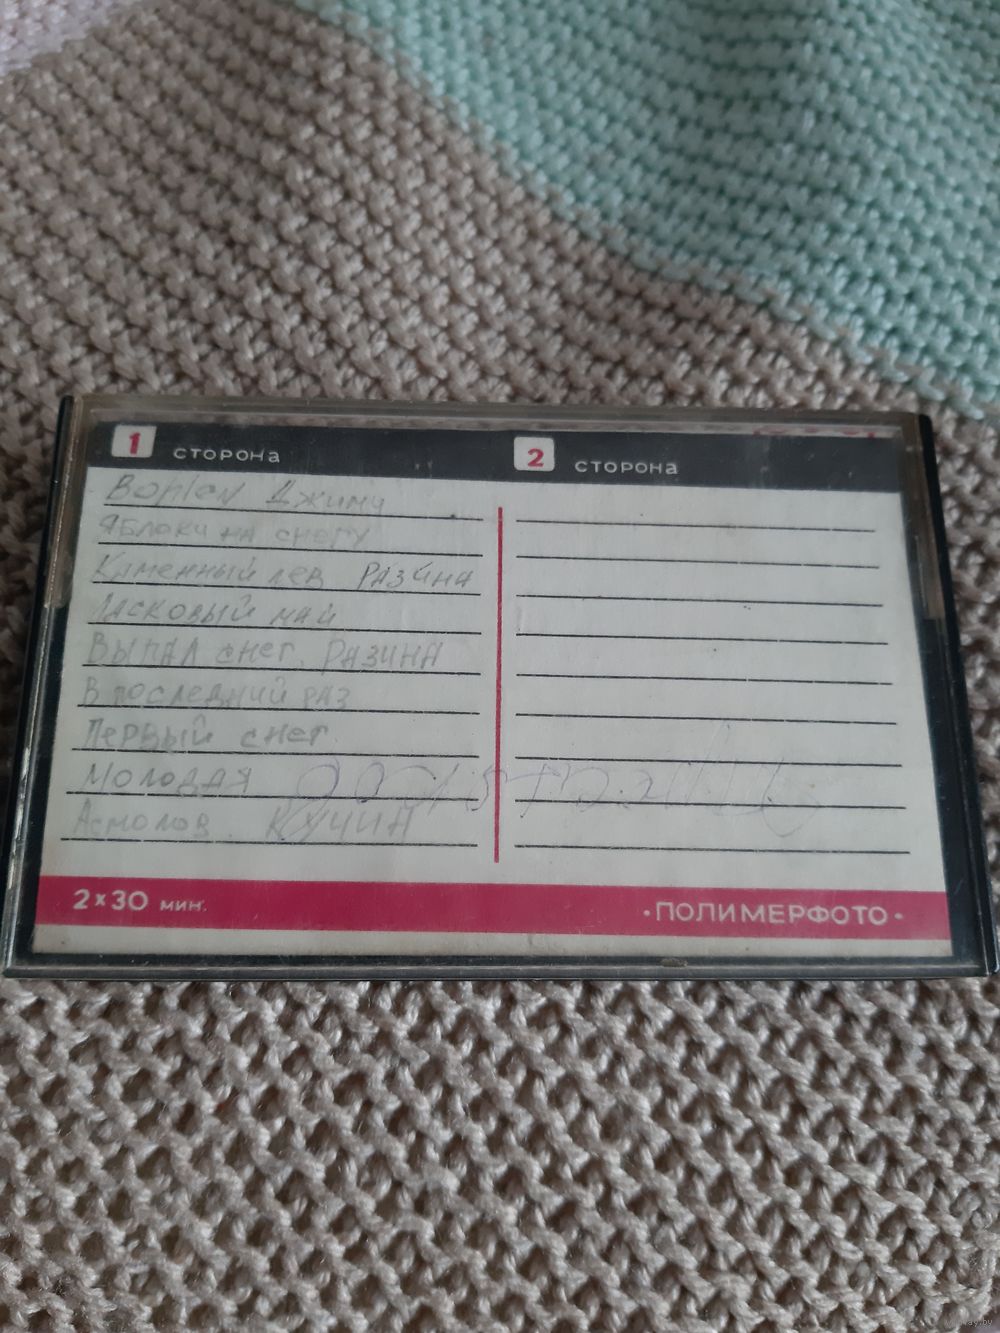 1 СТОРОНА
2 СТОРОНА
Bohlen Джими
Яблоки на снегу
Каменный лев РАЗИНА
Ласковый май
Выпал снег РАЗИНА
В последний раз
Первый снег
Молодая
Асмолов КУЧИН
2×30 мин.
·ПОЛИМЕРФОТО·